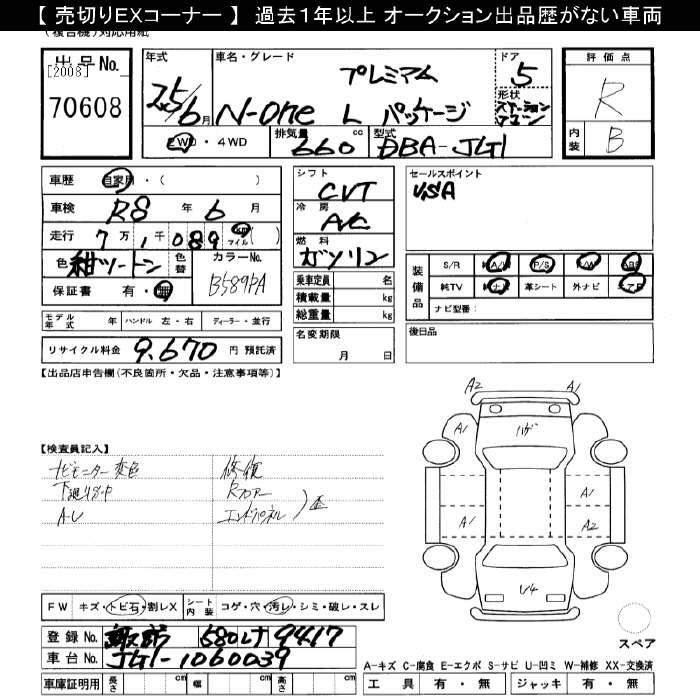 【 売切りEXコーナー 】 過去１年以上 オークション出品歴がない車両
(複合機)対応用紙
出品No.
[2008]
70608
年式
25/6月
車名・グレード
プレミアム
N-one L パッケージ
ドア
5
形状
ステーションワゴン
2WD・4WD
排気量 660 cc
型式 DBA-JG1
評価点
R
内装 B
車歴 自家用・( )
車検 R8 年 6 月
走行 7万1千089 km マイル ( )
色 紺ツートン 色替 カラーNo. B589PA
保証書 有・無
モデル年式 年 ハンドル 左・右 ディーラー・並行
リサイクル料金 9,670 円 預託済
シフト CVT
冷房 A/C
燃料 ガソリン
乗車定員 名
積載量 kg
総重量 kg
名変期限
月 日
セールスポイント
装備品
S/R 純A/W P/S P/W ABS
純TV 純ナビ 革シート 外ナビ エアB
ナビ型番:
後日品
【出品店申告欄(不良箇所・欠品・注意事項等)】
【検査員記入】
ナビモニター変色 修復
下廻りサ・P Rフロアー
A・U エンドパネル ) 歪
FW キズ・トビ石・割レX シート内装 コゲ・穴・汚レ・シミ・破レ・スレ
登録No. 諏訪 580 け 9417
車台No. JG1-1060039
車庫証明用 長さ cm 幅 cm 高さ cm
A2 A1
A1 ハゲ A1
A1
A1 A2
U4
スペア
A-キズ C-腐食 E-エクボ S-サビ U-凹ミ W-補修 XX-交換済
工具 有・無 ジャッキ 有・無